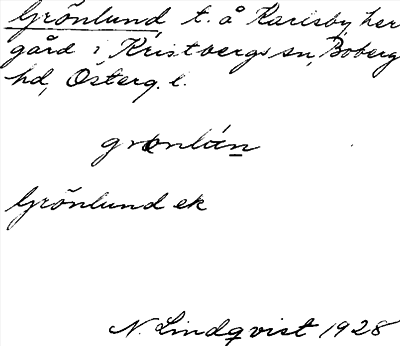 Grönlund, t. å Karlsby, her
gård i Kristbergs sn, Boberg
hd, Österg. l.
grönlún
Grönlund ek
N. Lindqvist 1928